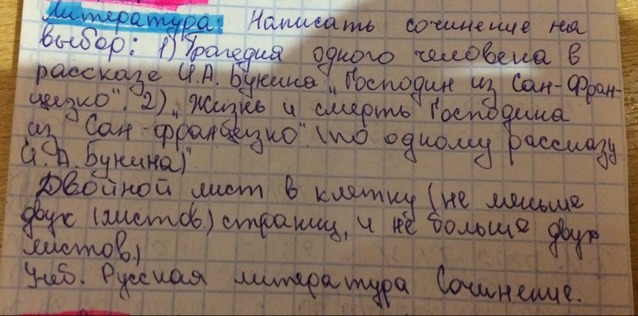 Литература: Написать сочинение на
выбор: 1) Трагедия одного человека в
рассказе И.А. Бунина „Господин из Сан-Фран-
цизко". 2) „Жизнь и смерть Господина
из Сан-францизко". (по одному рассказу
И.А. Бунина)"
Двойной лист в клетку (не меньше
двух (листов) страниц, и не больше двух
листов.)
Учеб. Русская литература Сочинение.